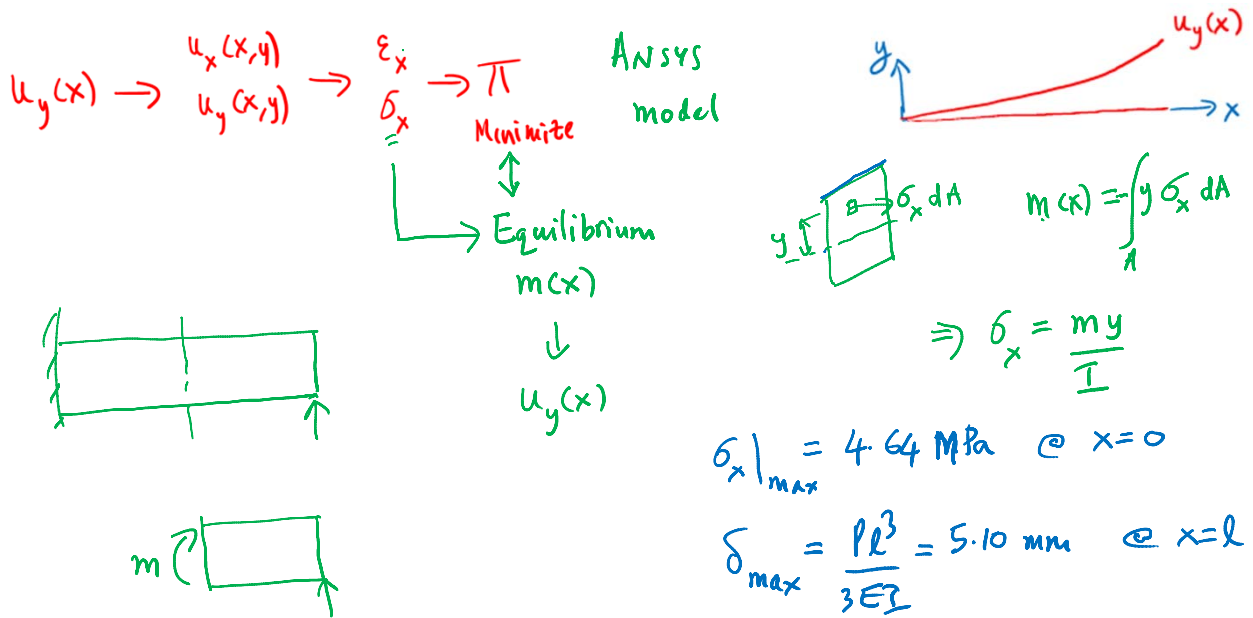 u_y(x) → u_x(x,y) u_y(x,y) → ε_x σ_x → π
Minimize
Equilibrium
m(x)
↓
u_y(x)
ANSYS
model
y
u_y(x)
x
y
σ_x dA
m(x) = -∫_A y σ_x dA
⇒ σ_x = my/I
m
σ_x|_max = 4.64 MPa @ x=0
δ_max = Pl³/3EI = 5.10 mm @ x=l